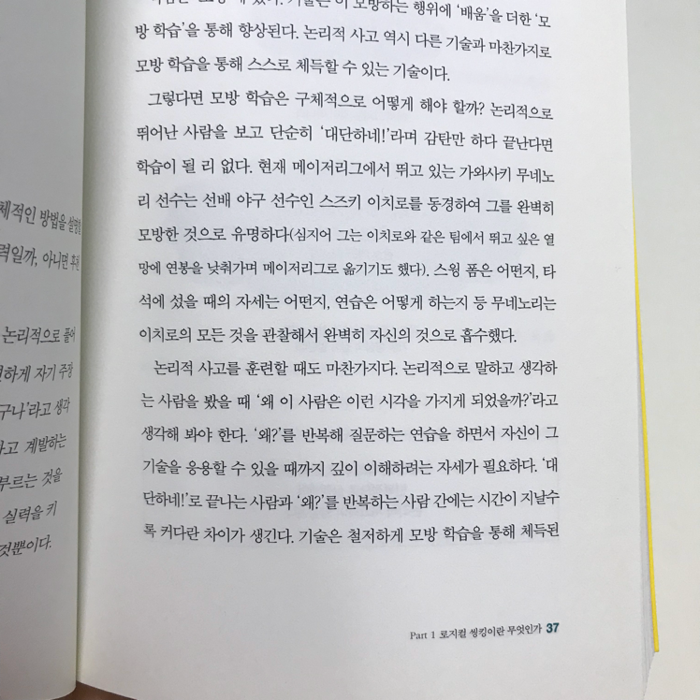 체적인 방법을 설명할
력일까, 아니면 후천
논리적으로 풀어
하게 자기 주장
구나’라고 생각
라고 계발하는
부르는 것을
실력을 키
것뿐이다.
기술은 이 모방하는 행위에 ‘배움’을 더한 ‘모
방 학습’을 통해 향상된다. 논리적 사고 역시 다른 기술과 마찬가지로
모방 학습을 통해 스스로 체득할 수 있는 기술이다.
그렇다면 모방 학습은 구체적으로 어떻게 해야 할까? 논리적으로
뛰어난 사람을 보고 단순히 ‘대단하네!’라며 감탄만 하다 끝난다면
학습이 될 리 없다. 현재 메이저리그에서 뛰고 있는 가와사키 무네노
리 선수는 선배 야구 선수인 스즈키 이치로를 동경하여 그를 완벽히
모방한 것으로 유명하다(심지어 그는 이치로와 같은 팀에서 뛰고 싶은 열
망에 연봉을 낮춰가며 메이저리그로 옮기기도 했다). 스윙 폼은 어떤지, 타
석에 섰을 때의 자세는 어떤지, 연습은 어떻게 하는지 등 무네노리는
이치로의 모든 것을 관찰해서 완벽히 자신의 것으로 흡수했다.
논리적 사고를 훈련할 때도 마찬가지다. 논리적으로 말하고 생각하
는 사람을 봤을 때 ‘왜 이 사람은 이런 시각을 가지게 되었을까?’라고
생각해 봐야 한다. ‘왜?’를 반복해 질문하는 연습을 하면서 자신이 그
기술을 응용할 수 있을 때까지 깊이 이해하려는 자세가 필요하다. ‘대
단하네!’로 끝나는 사람과 ‘왜?’를 반복하는 사람 간에는 시간이 지날수
록 커다란 차이가 생긴다. 기술은 철저하게 모방 학습을 통해 체득된
Part 1 로지컬 씽킹이란 무엇인가 37